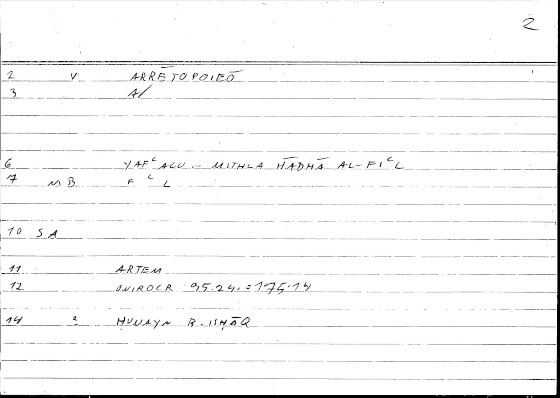 2
2 V ARRĒTOPOIEŌ
3 A/
6 YAFᶜALU - MITHLA HĀDHĀ AL-FIᶜL
7 NB FᶜL
10 SA
11 ARTEM
12 ONIROCR 95.24.=175.14
14 2 HUNAYN B. ISḤĀQ